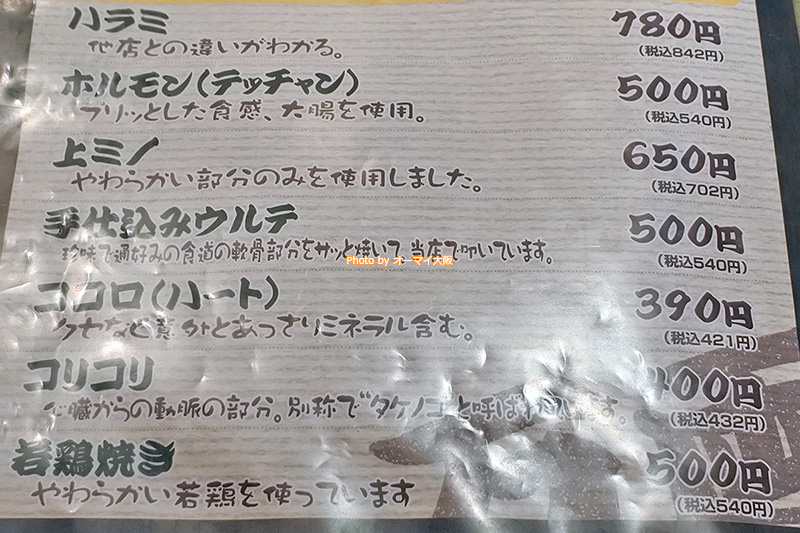 ハラミ 780円
他店との違いがわかる。 (税込842円)
ホルモン(テッチャン) 500円
プリッとした食感、大腸を使用。 (税込540円)
上ミノ 650円
やわらかい部分のみを使用しました。 (税込702円)
手仕込みウルテ 500円
珍味で通好みの食道の軟骨部分をサッと焼いて、当店で叩いています。 (税込540円)
Photo by オーマイ大阪
ココロ(ハート) 390円
クセなど意外とあっさりミネラル含む。 (税込421円)
コリコリ 400円
心臓からの動脈の部分。別称で"タケノコ"と呼ばれています。 (税込432円)
若鶏焼き 500円
やわらかい若鶏を使っています (税込540円)